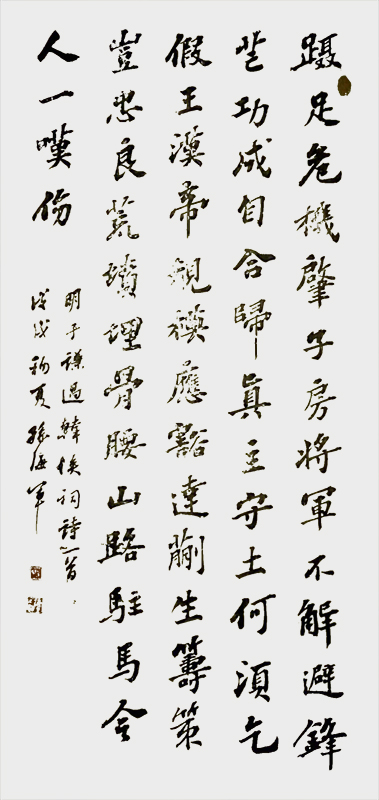 蹑足危機肇子房將軍不解避鋒
芒功成自合歸真主守土何須乞
假王漢帝規模應豁達蒯生籌策
豈忠良荒墳埋骨腰山路駐馬令
人一嘆傷
明于謙過韓侯祠詩一首
戊戌初夏海軍